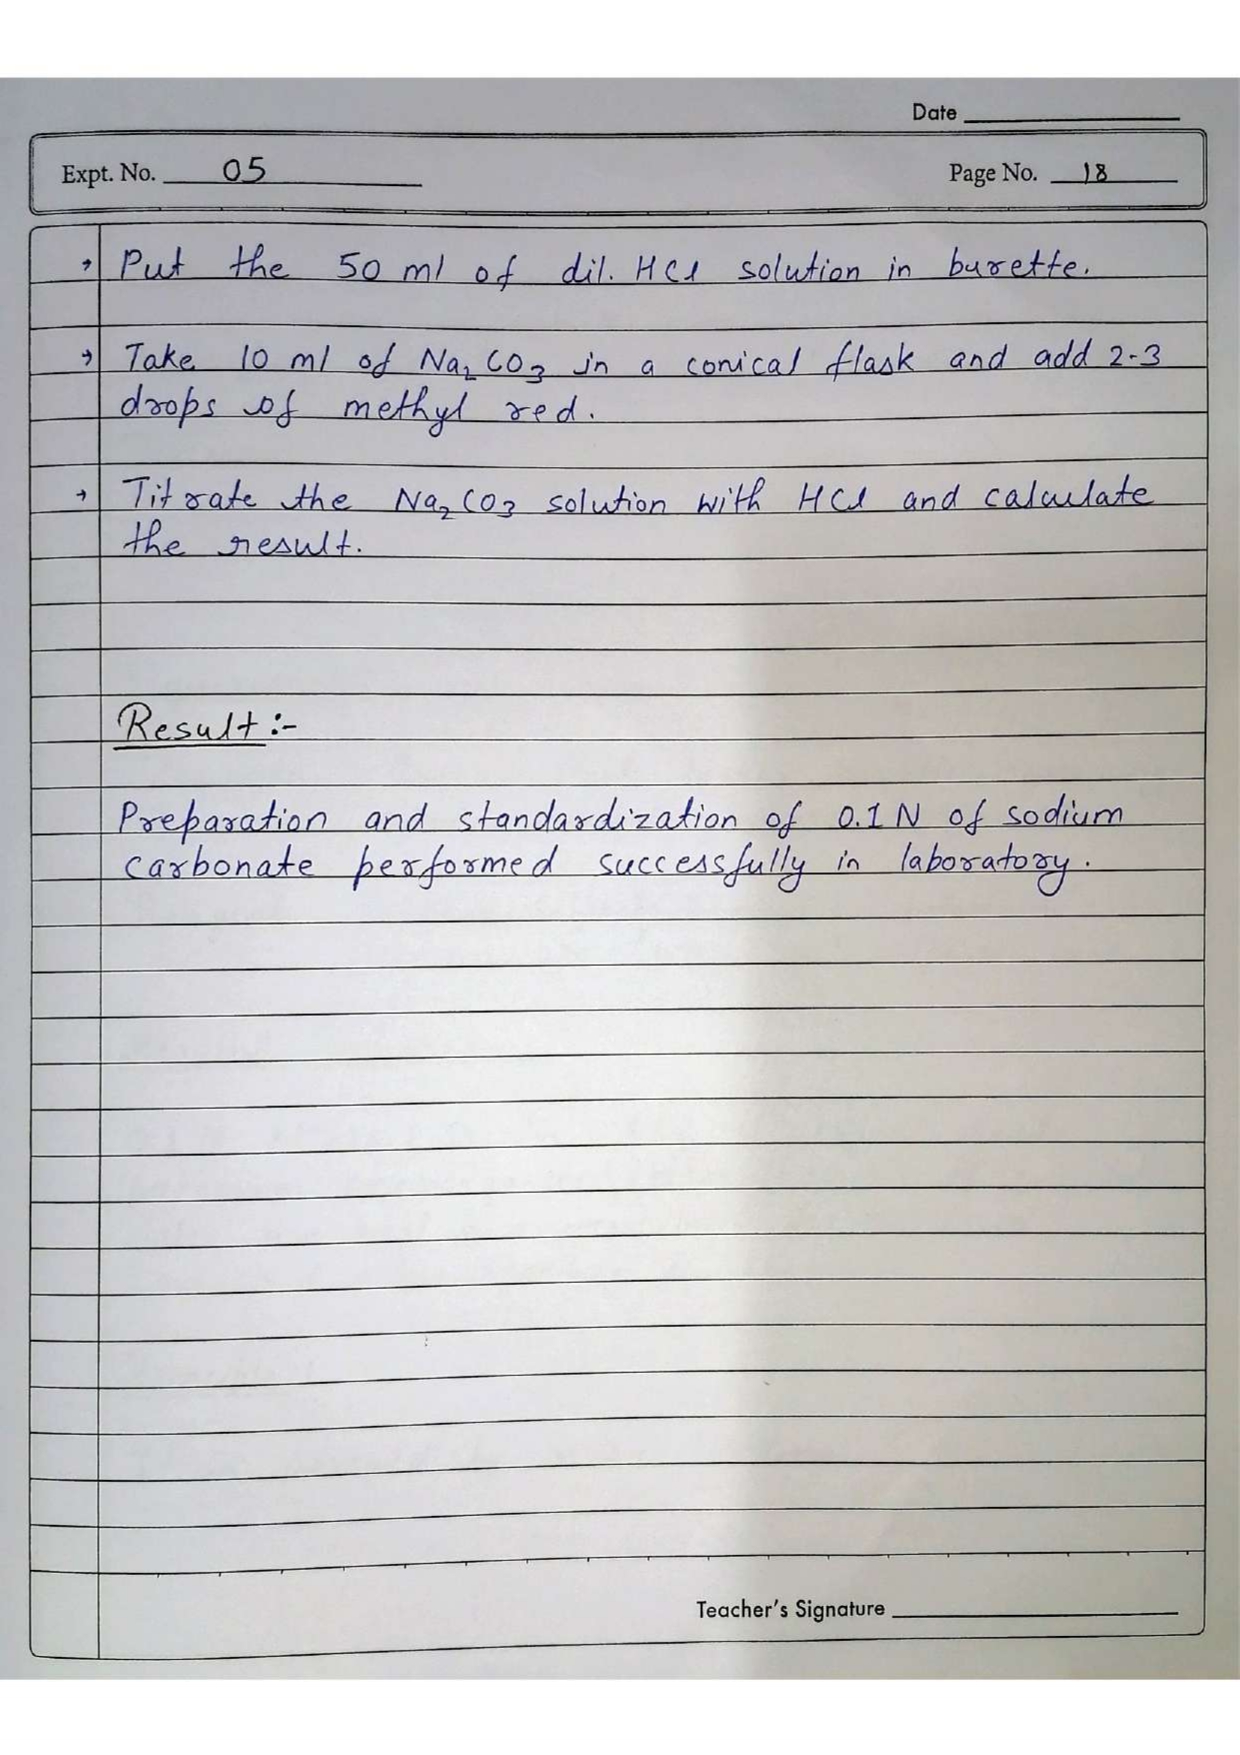 Date
Expt. No. 05
Page No. 18
→ Put the 50 ml of dil. HCl solution in burette.
→ Take 10 ml of Na₂CO₃ in a conical flask and add 2-3
drops of methyl red.
→ Titrate the Na₂CO₃ solution with HCl and calculate
the result.
Result :-
Preparation and standardization of 0.1 N of sodium
carbonate performed successfully in laboratory.
Teacher's Signature